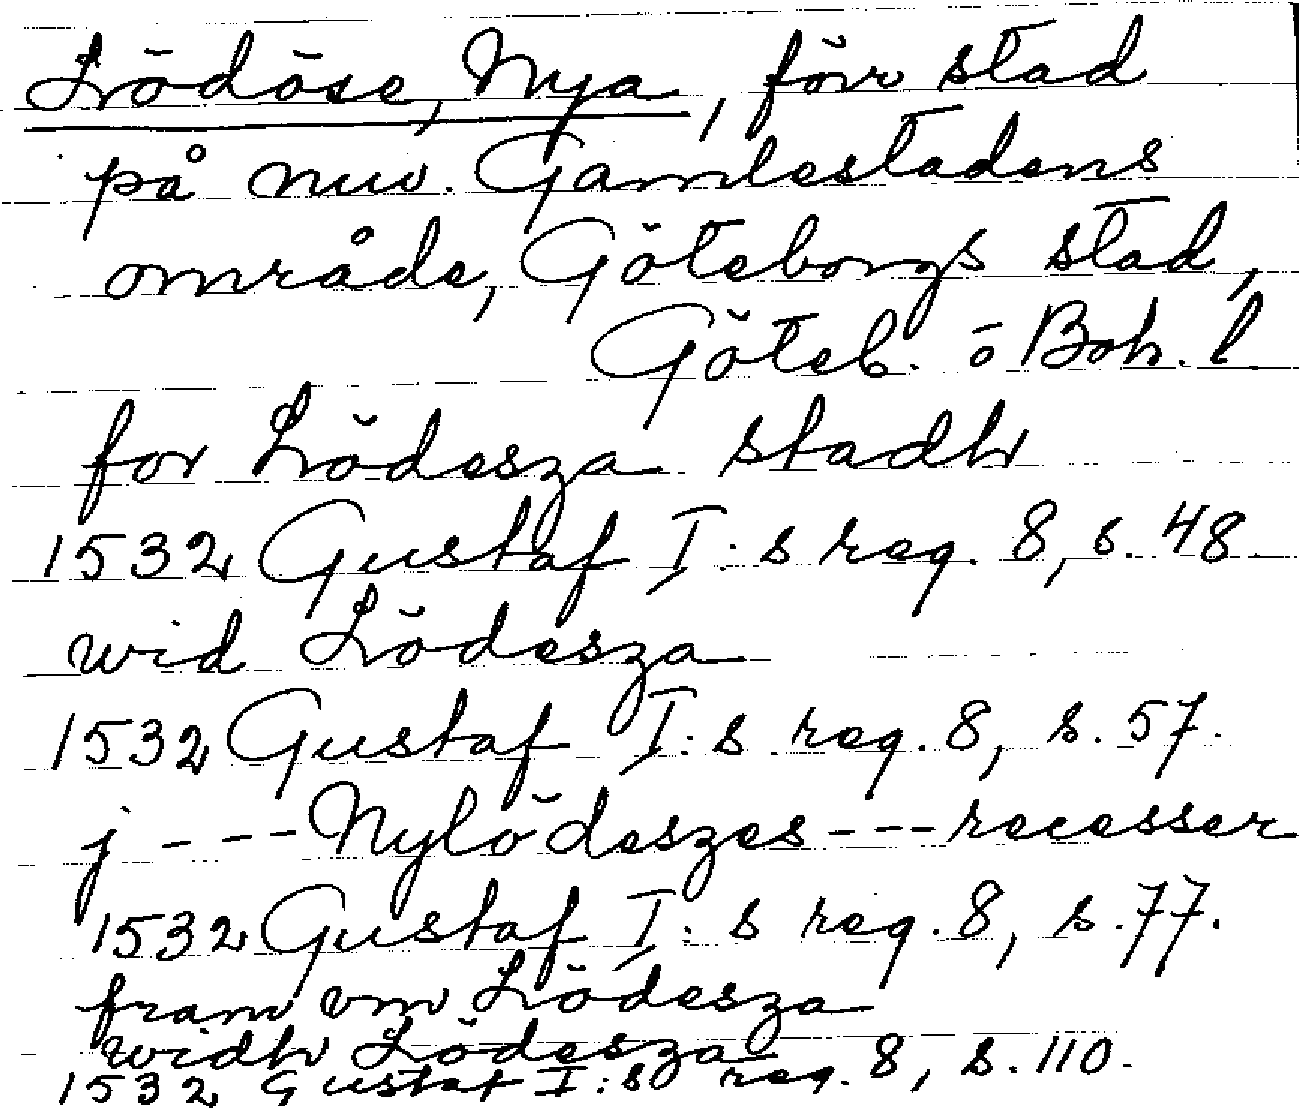 Lödöse, Nya, förr stad
på nuv. Gamlestadens
område, Göteborgs stad,
Göteb. o Boh. l
for Lödesza stadh
1532 Gustaf I:s reg. 8, s. 48
wid Lödesza
1532 Gustaf I:s reg. 8, s. 57.
j --- Nylödeszes --- recesser
1532 Gustaf I:s reg. 8, s. 77.
fram vm Lödesza
widh Lödesza
1532 Gustaf I:s reg. 8, s. 110.